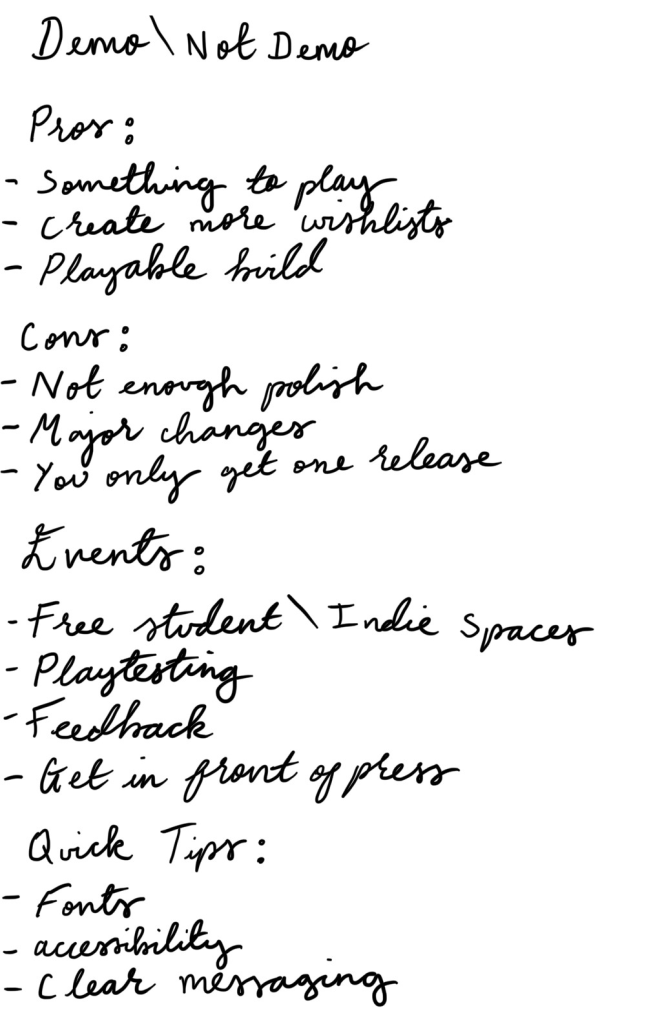 Demo\Not Demo
Pros:
- Something to play
- Create more wishlists
- Playable build
Cons:
- Not enough polish
- Major changes
- You only get one release
Events:
- Free student\Indie Spaces
- Playtesting
- Feedback
- Get in front of press
Quick Tips:
- Fonts
- accessibility
- Clear messaging